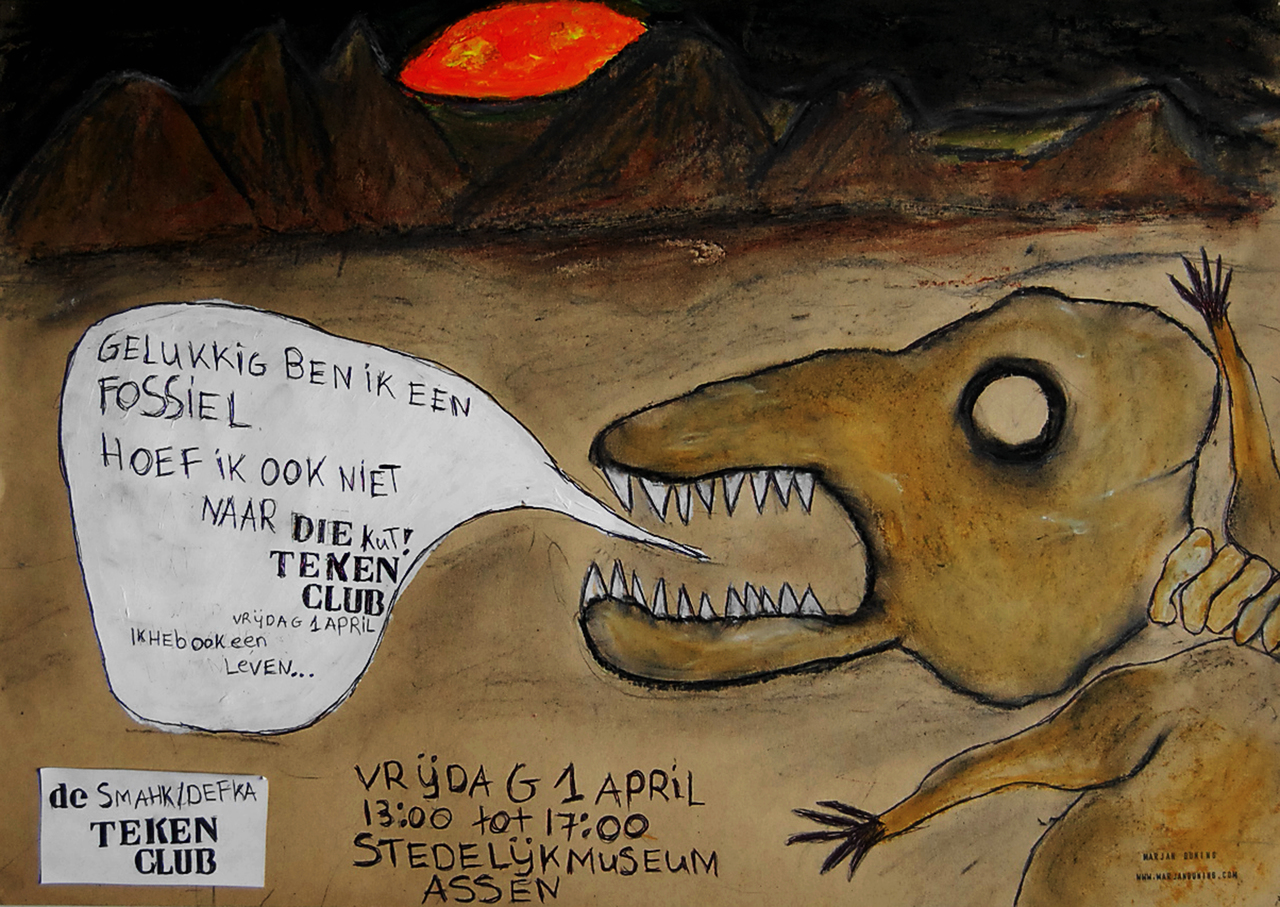 GELUKKIG BEN IK EEN
FOSSIEL
HOEF IK OOK NIET
NAAR DIE KUT!
TEKEN
CLUB
VRIJDAG 1 APRIL
IK HEB OOK EEN
LEVEN...
de SMAHK/DEFKA
TEKEN
CLUB
VRIJDAG 1 APRIL
13:00 tot 17:00
STEDELIJK MUSEUM
ASSEN
MARJAN DUNING
WWW.MARJANDUNING.COM